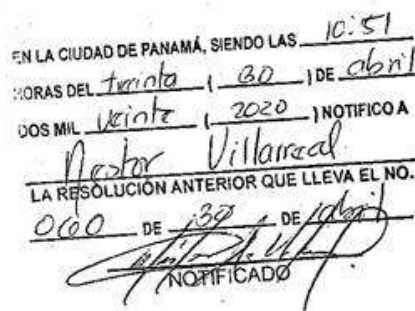 EN LA CIUDAD DE PANAMÁ, SIENDO LAS 10:51
HORAS DEL treinta ( 30 ) DE abril
DOS MIL veinte ( 2020 ) NOTIFICO A
Nestor Villarreal
LA RESOLUCIÓN ANTERIOR QUE LLEVA EL NO.
DE 30 DE abril
NOTIFICADO